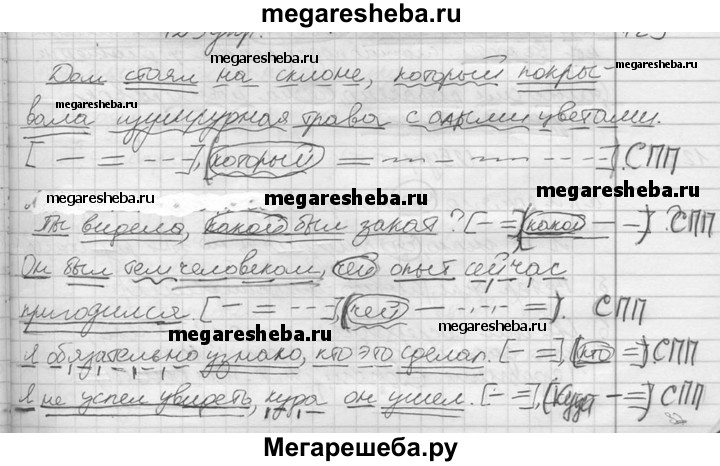 megaresheba.ru
123 упр.
Дом стоял на склоне, который покры-
megaresheba.ru
megaresheba.ru
вала пурпурная трава с алыми цветами.
megaresheba.ru
[— = —·—], (который = — — —). СПП
megaresheba.ru
megaresheba.ru
megaresheba.ru
Ты видела, какой был закат? [— =], (какой — =)? СПП
Он был тем человеком, чей опыт сейчас
megaresheba.ru
пригодился. [— = — —], (чей — — =). СПП
megaresheba.ru
megaresheba.ru
Я обязательно узнаю, кто это сделал. [— =], (кто =) СПП
Я не успел увидеть, куда он ушел. [— =], (куда — =) СПП
Мегарешеба.ру